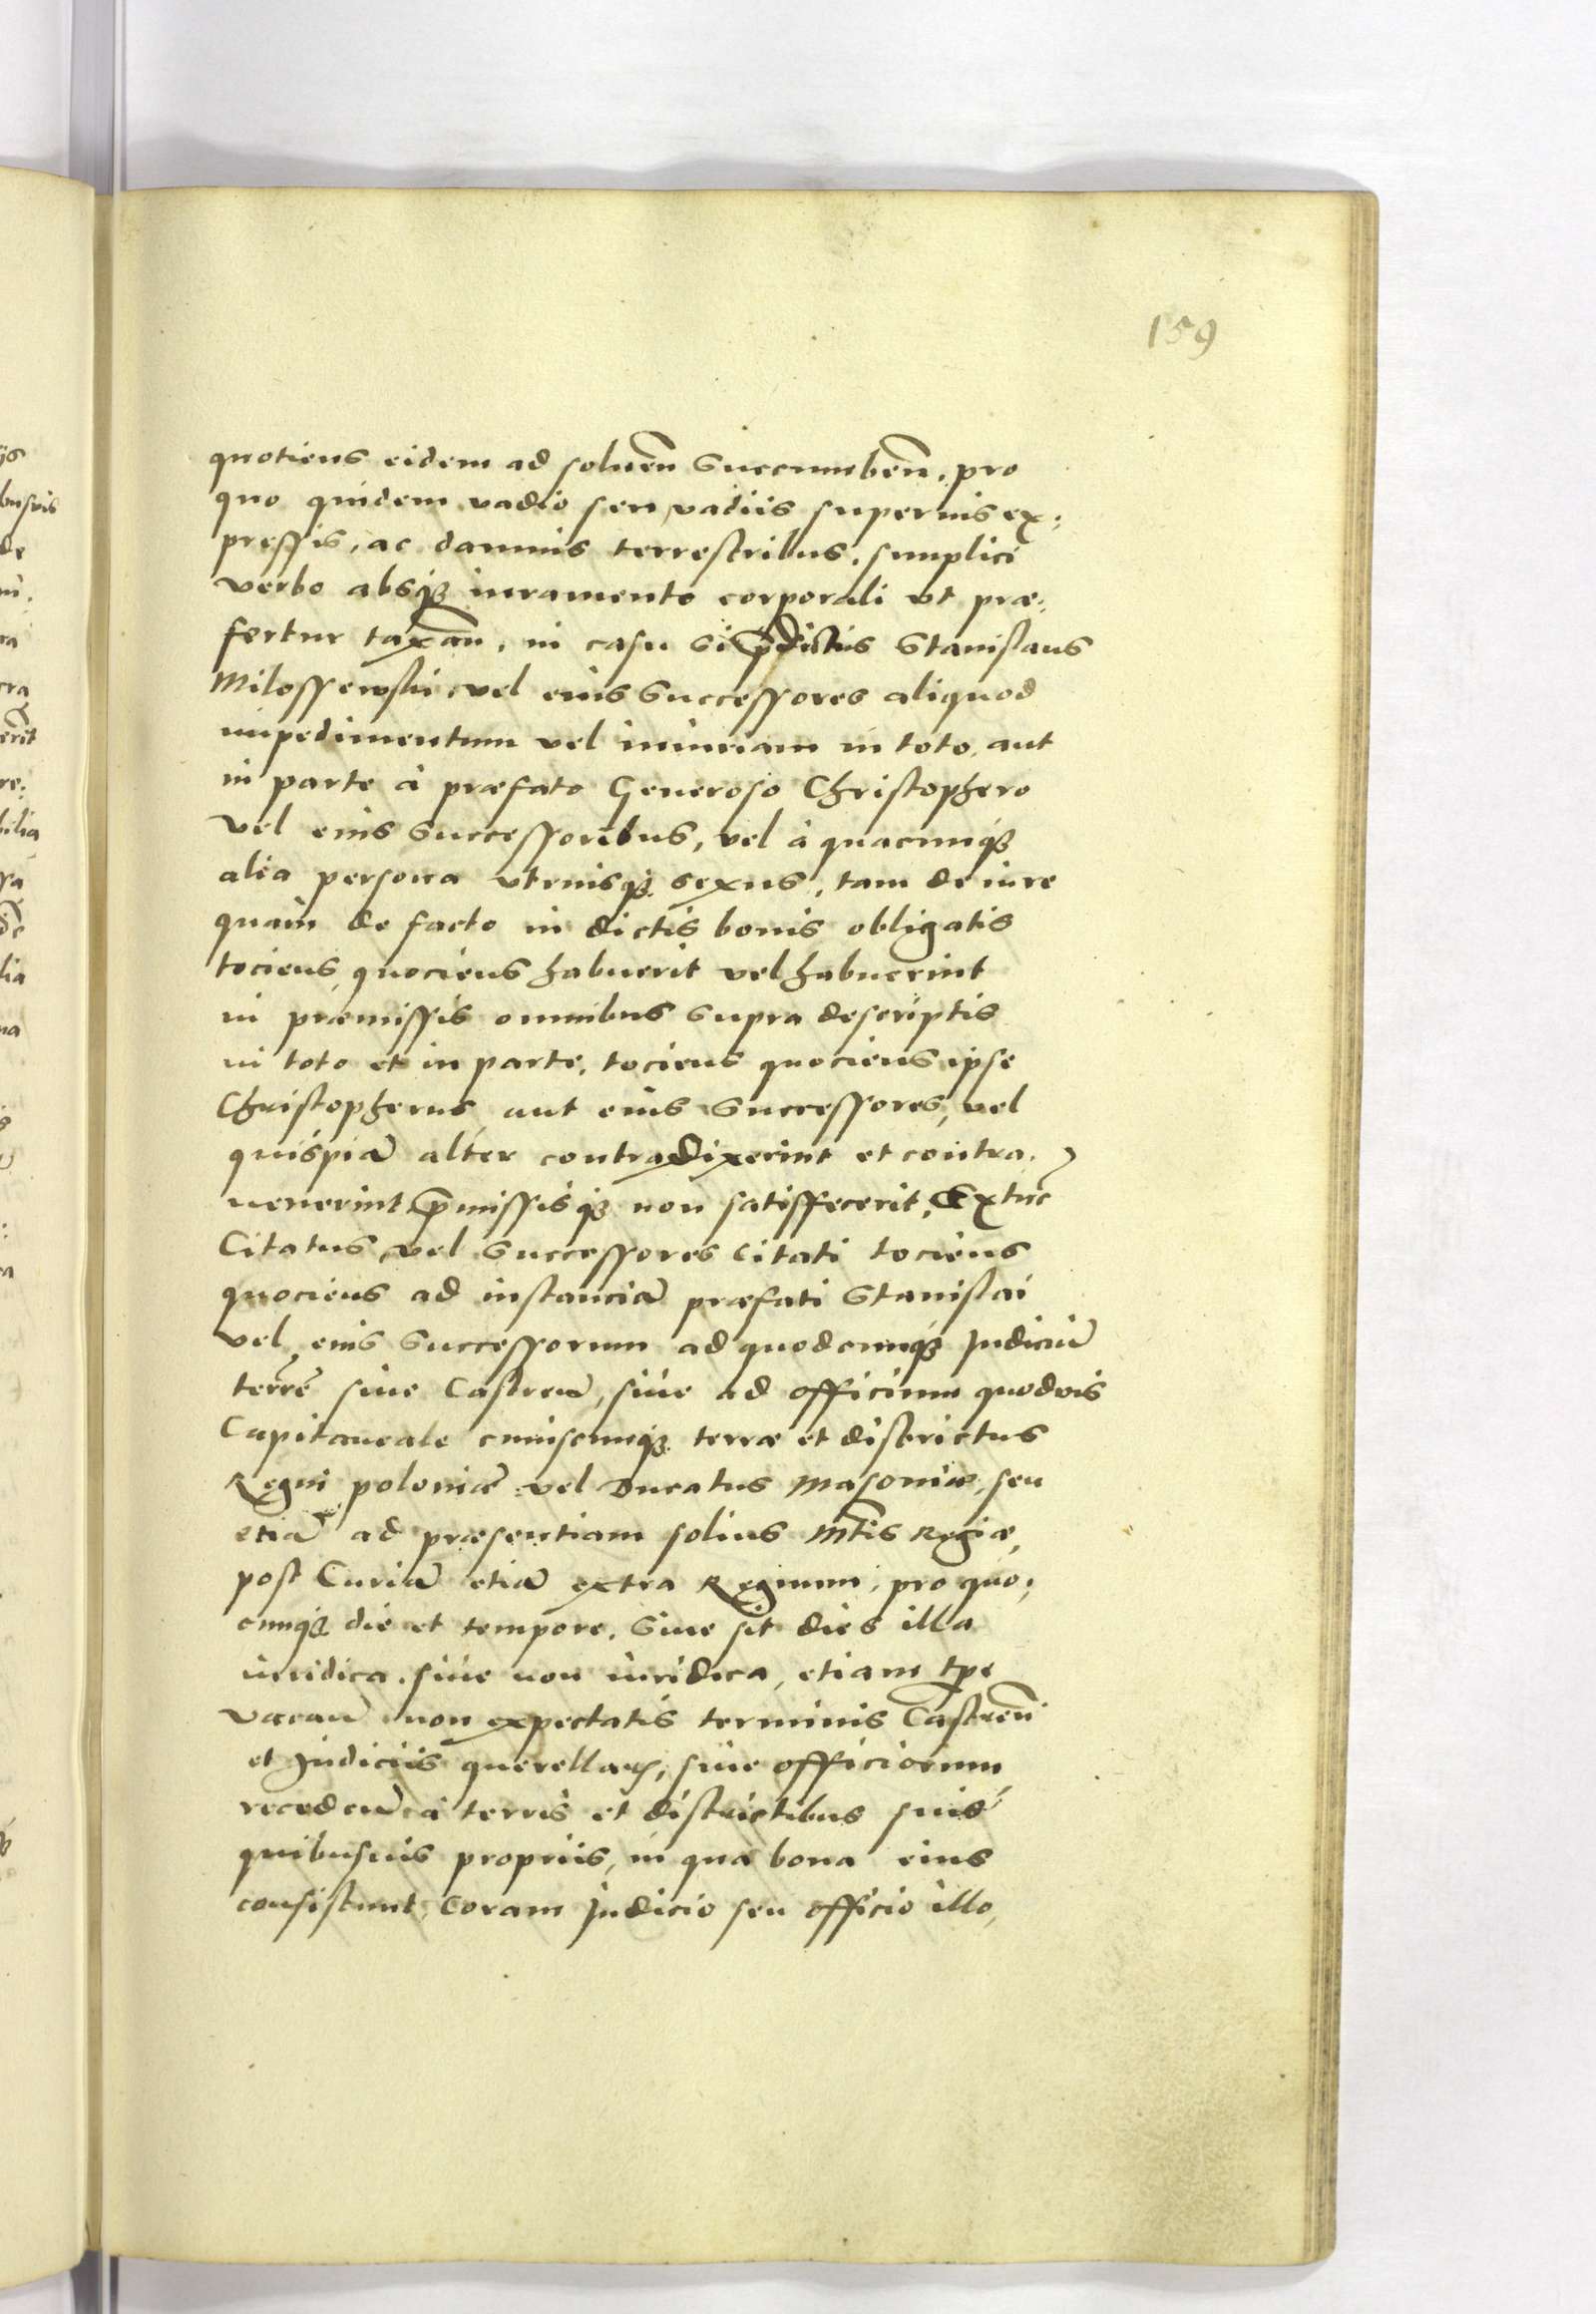 159
quotiens eidem ad soluen̄ Succumben̄. pro
quo quidem vadio seu vadiis supernis ex:
pressis, ac damnis terrestribus. simplici
verbo absq₃ iuramento corporali vt præ:
fertur taxan̄, in casu si p̄dictus Stanislaus
Milossewski, vel eius Successores aliquod
impedimentum vel iniuriam in toto, aut
in parte à præfato Generoso Christophero
vel eius Successoribus, vel à quacunq₃
alia persona vtriusq₃ sexus, tam de iure
quàm de facto in dictis bonis obligatis
tociens quociens habuerit vel habuerint
in præmissis omnibus supra descriptis
in toto et in parte, tociens quociens ipse
Christopherus aut eius Successores, vel
quispiā alter contradixerint et contra.
uenerint p̄missisq₃ non satisfecerit, Extūc
Citatus, vel Successores Citati tociens
quociens ad instanciā præfati Stanislai
vel eius Successorum ad quodcunq₃ Judiciū
terrē siue Castren̄, siue ad officium quoduis
Capitaneale cuiuscunq₃ terræ et districtus
Regni poloniæ vel Ducatus Masoniæ, seu
etiā ad præsentiam solius Mtis Regiæ,
post Curiā etiā extra Regnum, pro quo:
cunq₃ die et tempore. Siue sit dies illa
iuridica. siue non iuridica, etiam tpe
vacan̄ non expectatis terminis Castren̄
et Judiciis querellaꝝ, siue officiorum
recedēn̄ à terris et districtibus suis
quibusuis propriis, in qua bona eius
consistunt, Coram Judicio seu officio illo,